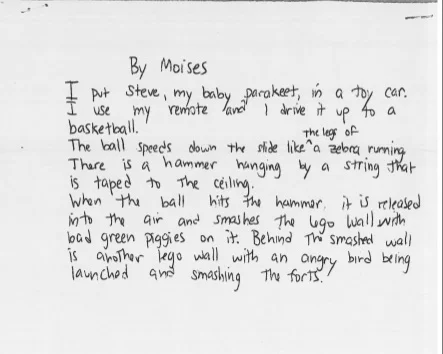 By Moises
I put Steve, my baby parakeet, in a toy car.
I use my remote and I drive it up to a
basketball.
the legs of
The ball speeds down the slide like ^ a zebra running
There is a hammer hanging by a string that
is taped to the ceiling.
When the ball hits the hammer, it is released
into the air and smashes the lego wall with
bad green piggies on it. Behind the smashed wall
is another lego wall with an angry bird being
launched and smashing the forts.